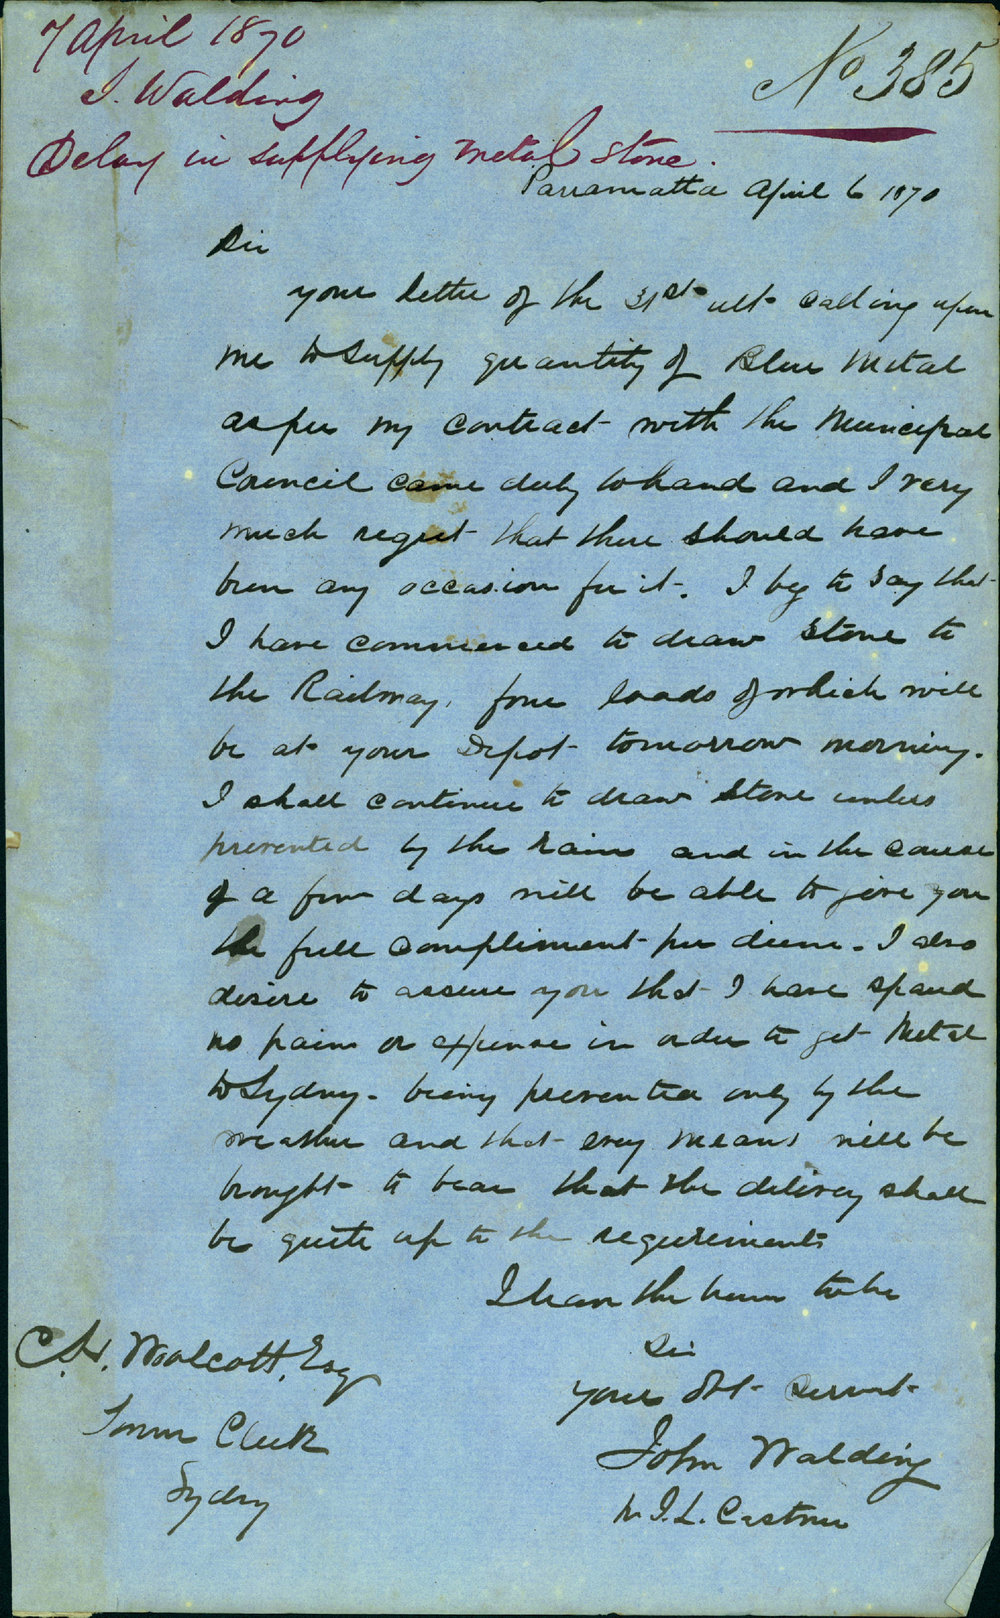 7 April 1870
J. Walding
Delay in supplying metal stone.
No 385
Parramatta April 6 1870
Sir
your letter of the 31st ult calling upon
me to supply quantity of Blue Metal
as per my contract with the Municipal
Council came duly to hand and I very
much regret that there should have
been any occasion for it. I beg to say that
I have commenced to draw stone to
the Railway, four loads of which will
be at your Depot tomorrow morning.
I shall continue to draw stone unless
prevented by the rain and in the course
of a few days will be able to give you
the full compliment per diem. I also
desire to assure you that I have spared
no pains or expense in order to get Metal
to Sydney. being prevented only by the
weather and that every means will be
brought to bear that the delivery shall
be quite up to the requirements
I have the honor to be
Sir
your Obt Servant
John Walding
C.H. Woolcott, Esq
Town Clerk
Sydney
J.L. Castner